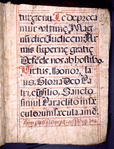 tur genu. Te depreca
mur ultimæ Mag
num diei Judicem Ar
mis supernæ gratiæ
Defende nos ab hostibus.
Virtus, honor, la
us, Gloria Deo Pa
tri et Filio, Sancto
simul Paraclito In sæ
culorum sæcula. amen.